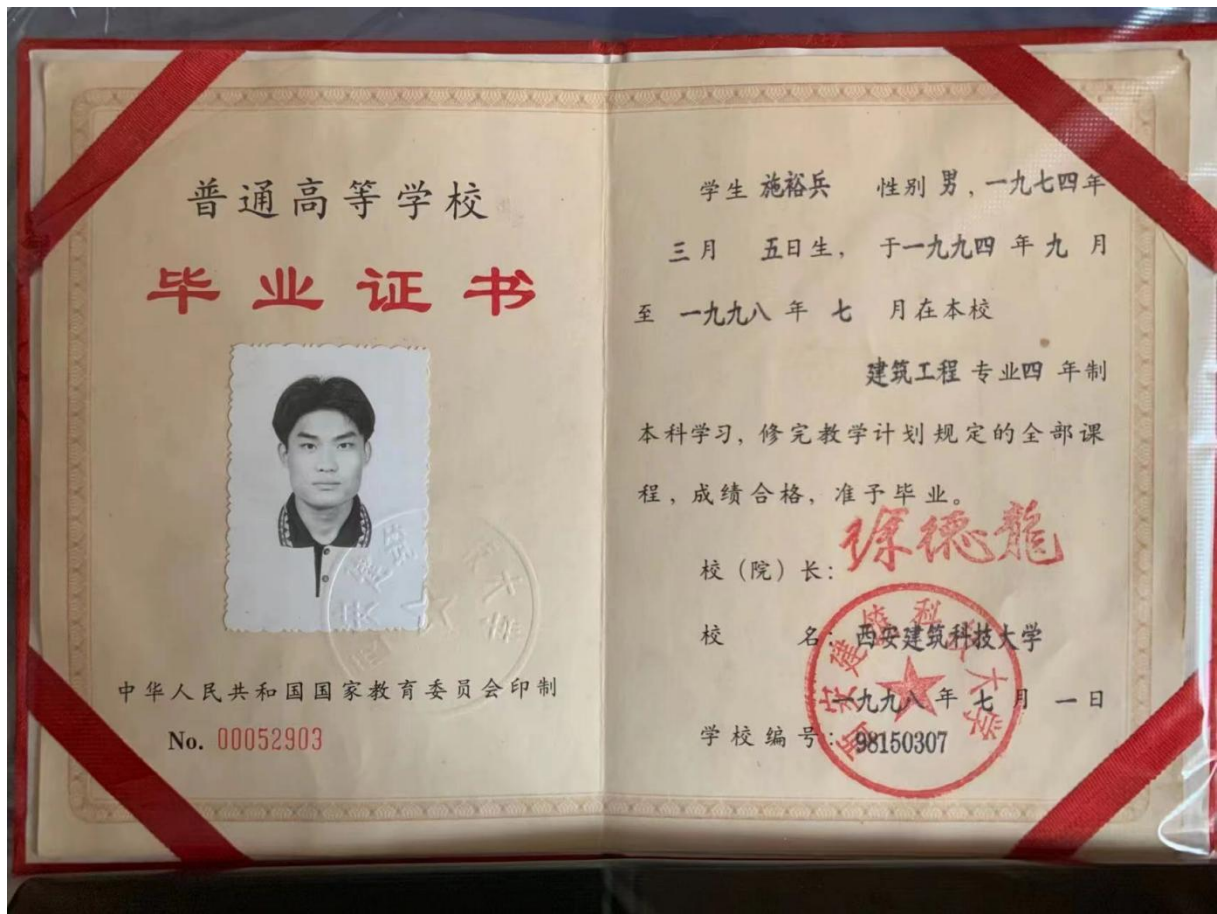 普通高等学校
毕业证书
中华人民共和国国家教育委员会印制
No. 00052903
学生 施裕兵 性别 男，一九七四年
三月 五日生，于一九九四年九月
至 一九九八年 七 月在本校
建筑工程 专业四 年制
本科学习，修完教学计划规定的全部课
程，成绩合格，准予毕业。
校（院）长：徐德龍
校 名：西安建筑科技大学
一九九八年七月一日
学校编号：98150307
西安建筑科技大学
西安建筑科技大学